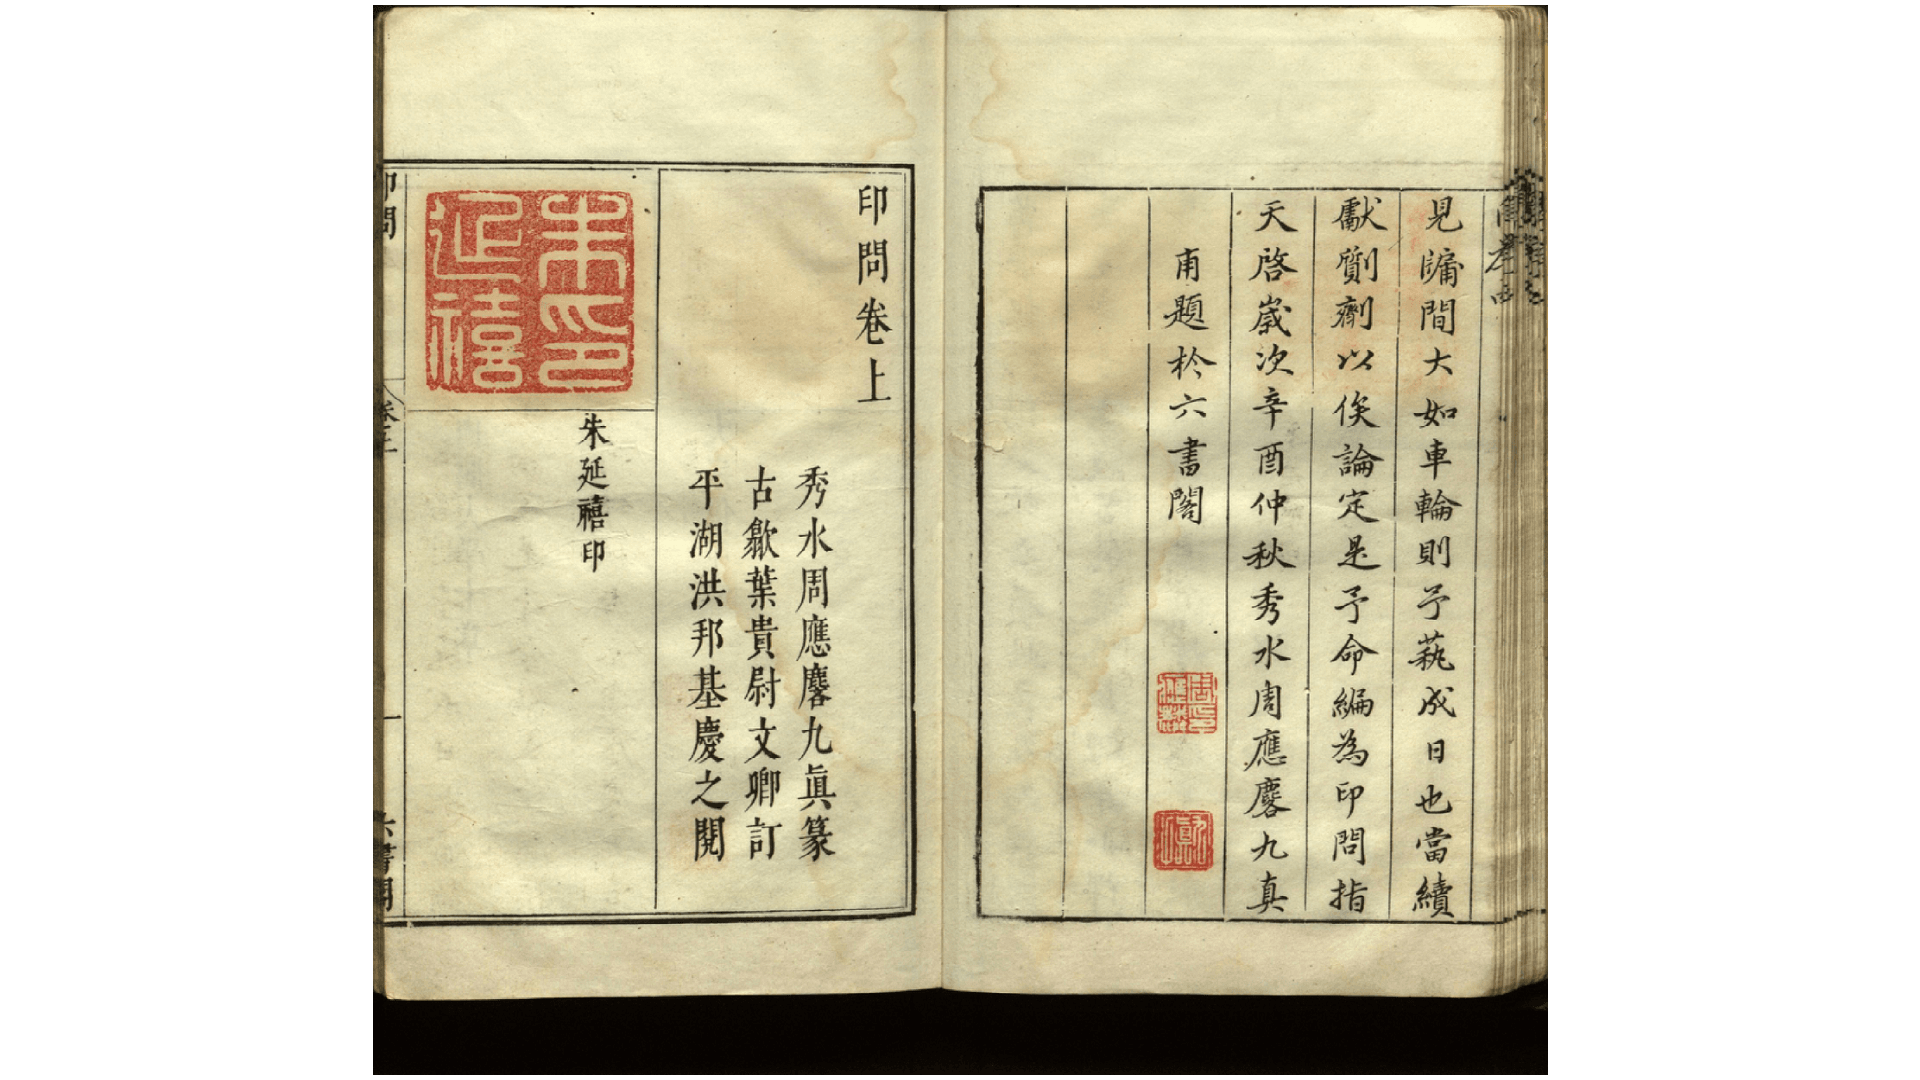 見牖間大如車輪則予蓺成日也當續
獻質劑以俟論定是予命編為印問指
天啓歲次辛酉仲秋秀水周應麐九真
甫題於六書閣
印問卷上
秀水周應麐九眞篆
古歙葉貴尉文卿訂
平湖洪邦基慶之閱
朱印延禧
朱延禧印
印問
一
六書閣